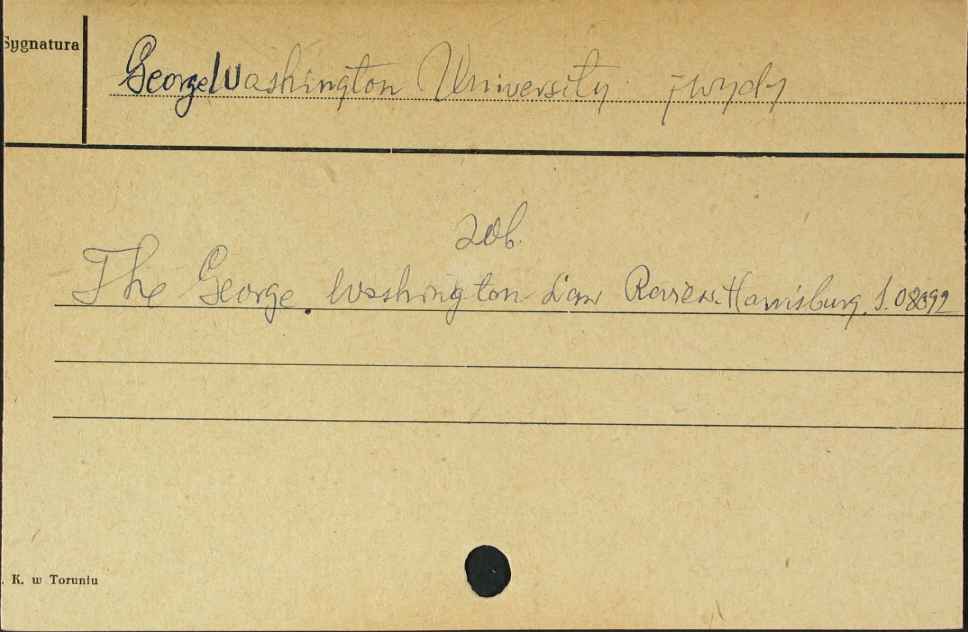 Sygnatura
George Washington University jwyd
zob.
The George Washington Law Review. Harrisburg. S. 08092
. K. w Toruniu